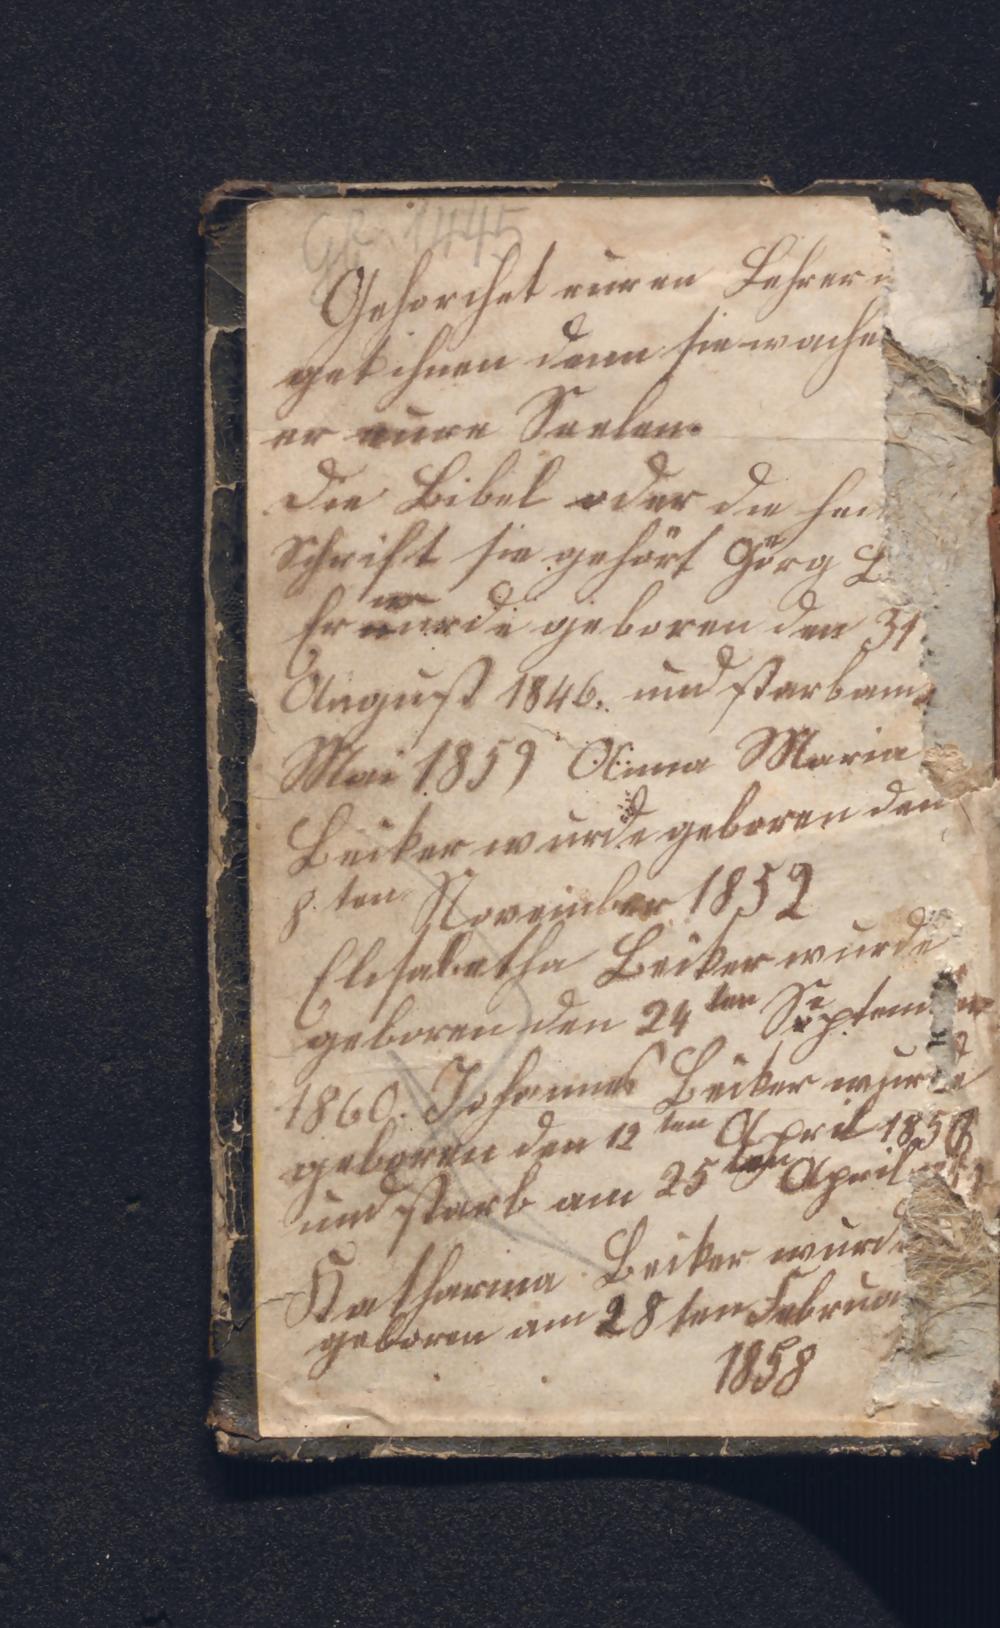 GK 1445
Gehorchet euren Lehrer
get ihnen denn sie wache
er eure Seelen.
Die Bibel oder die hei
Schrift sie gehört Görg B
Er wurde geboren den 31
August 1846. und starb am
Mai 1859 Anna Maria
Beiker wurde geboren den
8.ten November 1852
Elisabetha Beiker wurde
geboren den 24ten September
1860. Johannes Beiker wurde
geboren den 12ten April 185
und starb am 25ten April
Katharina Beiker wurd
geboren am 28ten Februa
1858